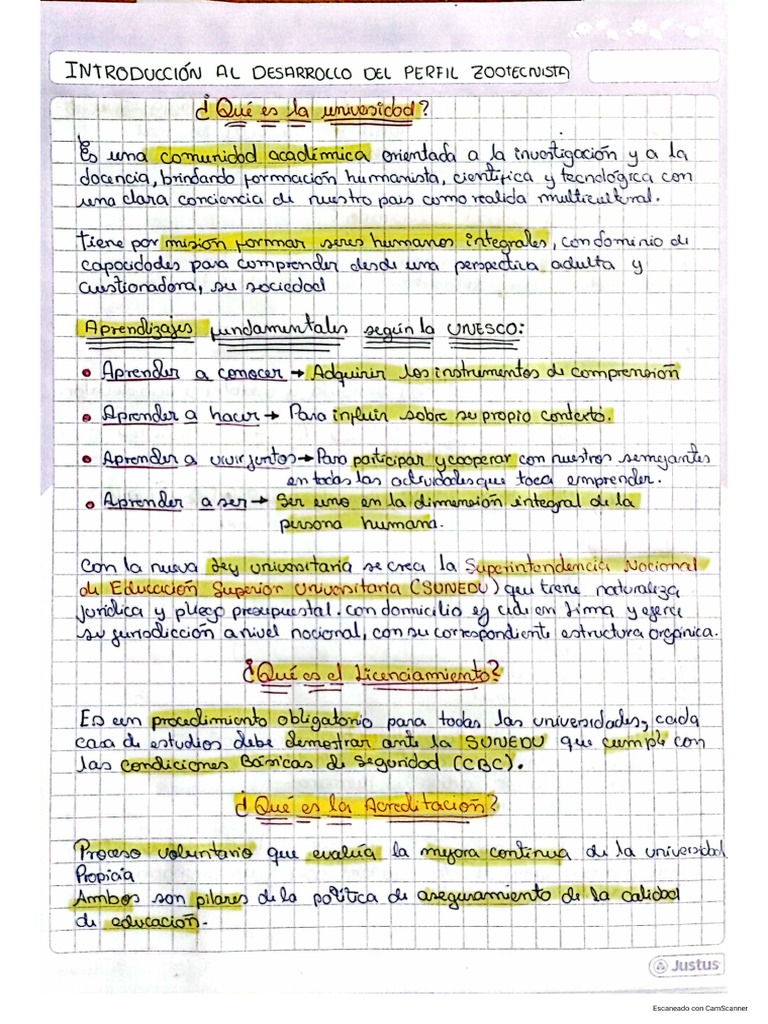 INTRODUCCIÓN AL DESARROLLO DEL PERFIL ZOOTECNISTA
¿Qué es la universidad?
Es una comunidad académica orientada a la investigación y a la
docencia, brindando formación humanista, científica y tecnológica con
una clara conciencia de nuestro pais como realida multicultural.
Tiene por misión formar seres humanos integrales, con dominio de
capacidades para comprender desde una perspectiva adulta y
cuestionadora, su sociedad
Aprendizajes fundamentales según la UNESCO:
• Aprender a conocer → Adquirir los instrumentos de comprensión
• Aprender a hacer → Para influir sobre su propio contexto.
• Aprender a vivir juntos → Para participar y cooperar con nuestros semejantes
en todas las actividades que toca emprender.
• Aprender a ser → Ser uno en la dimensión integral de la
persona humana.
Con la nueva ley universitaria se crea la Superintendencia Nacional
de Educación Superior Universitaria (SUNEDU) que tiene naturaleza
jurídica y pliego presupuestal. con domicilio en Lima y ejerce
su jurisdicción a nivel nacional, con su correspondiente estructura orgánica.
¿Qué es el Licenciamiento?
Es un procedimiento obligatorio para todas las universidades, cada
casa de estudios debe demostrar ante la SUNEDU que cumple con
las condiciones Básicas de Seguridad (CBC).
¿Qué es la Acreditación?
Proceso voluntario que evalúa la mejora continua de la universidad
Propicia
Ambos son pilares de la política de aseguramiento de la calidad
de educación.
Justus
Escaneado con CamScanner